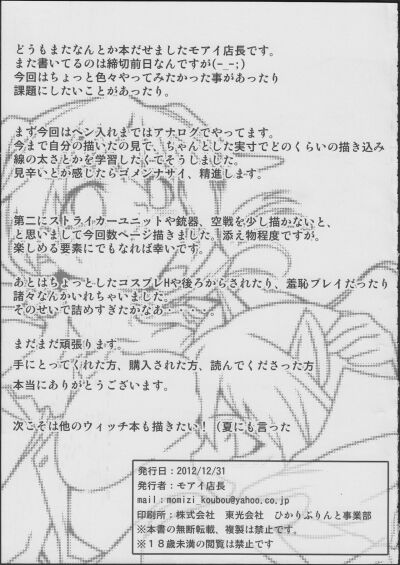 どうもまたなんとか本だせましたモアイ店長です。
また書いてるのは締切前日なんですが(-_-;)
今回はちょっと色々やってみたかった事があったり
課題にしたいことがあったり。
まず今回はペン入れまではアナログでやってます。
今まで自分の描いたの見て、ちゃんとした実寸でどのくらいの描き込み
線の太さとかを学習したくてそうしました。
見辛いとか感じたらゴメンナサイ、精進します。
第二にストライカーユニットや銃器、空戦を少し描かないと、
と思いまして今回数ページ描きました。添え物程度ですが。
楽しめる要素にでもなれば幸いです。
あとはちょっとしたコスプレHや後ろからされたり、羞恥プレイだったり
諸々なんかいれちゃいました。
そのせいで詰めすぎたかなあ・・・・・。
まだまだ頑張ります。
手にとってくれた方、購入された方、読んでくださった方
本当にありがとうございます。
次こそは他のウィッチ本も描きたい！（夏にも言った
発行日：2012/12/31
発行者：モアイ店長
mail：momizi_koubou@yahoo.co.jp
印刷所：株式会社　東光会社　ひかりぷりんと事業部
※本書の無断転載、複製は禁止です。
※１８歳未満の閲覧は禁止です